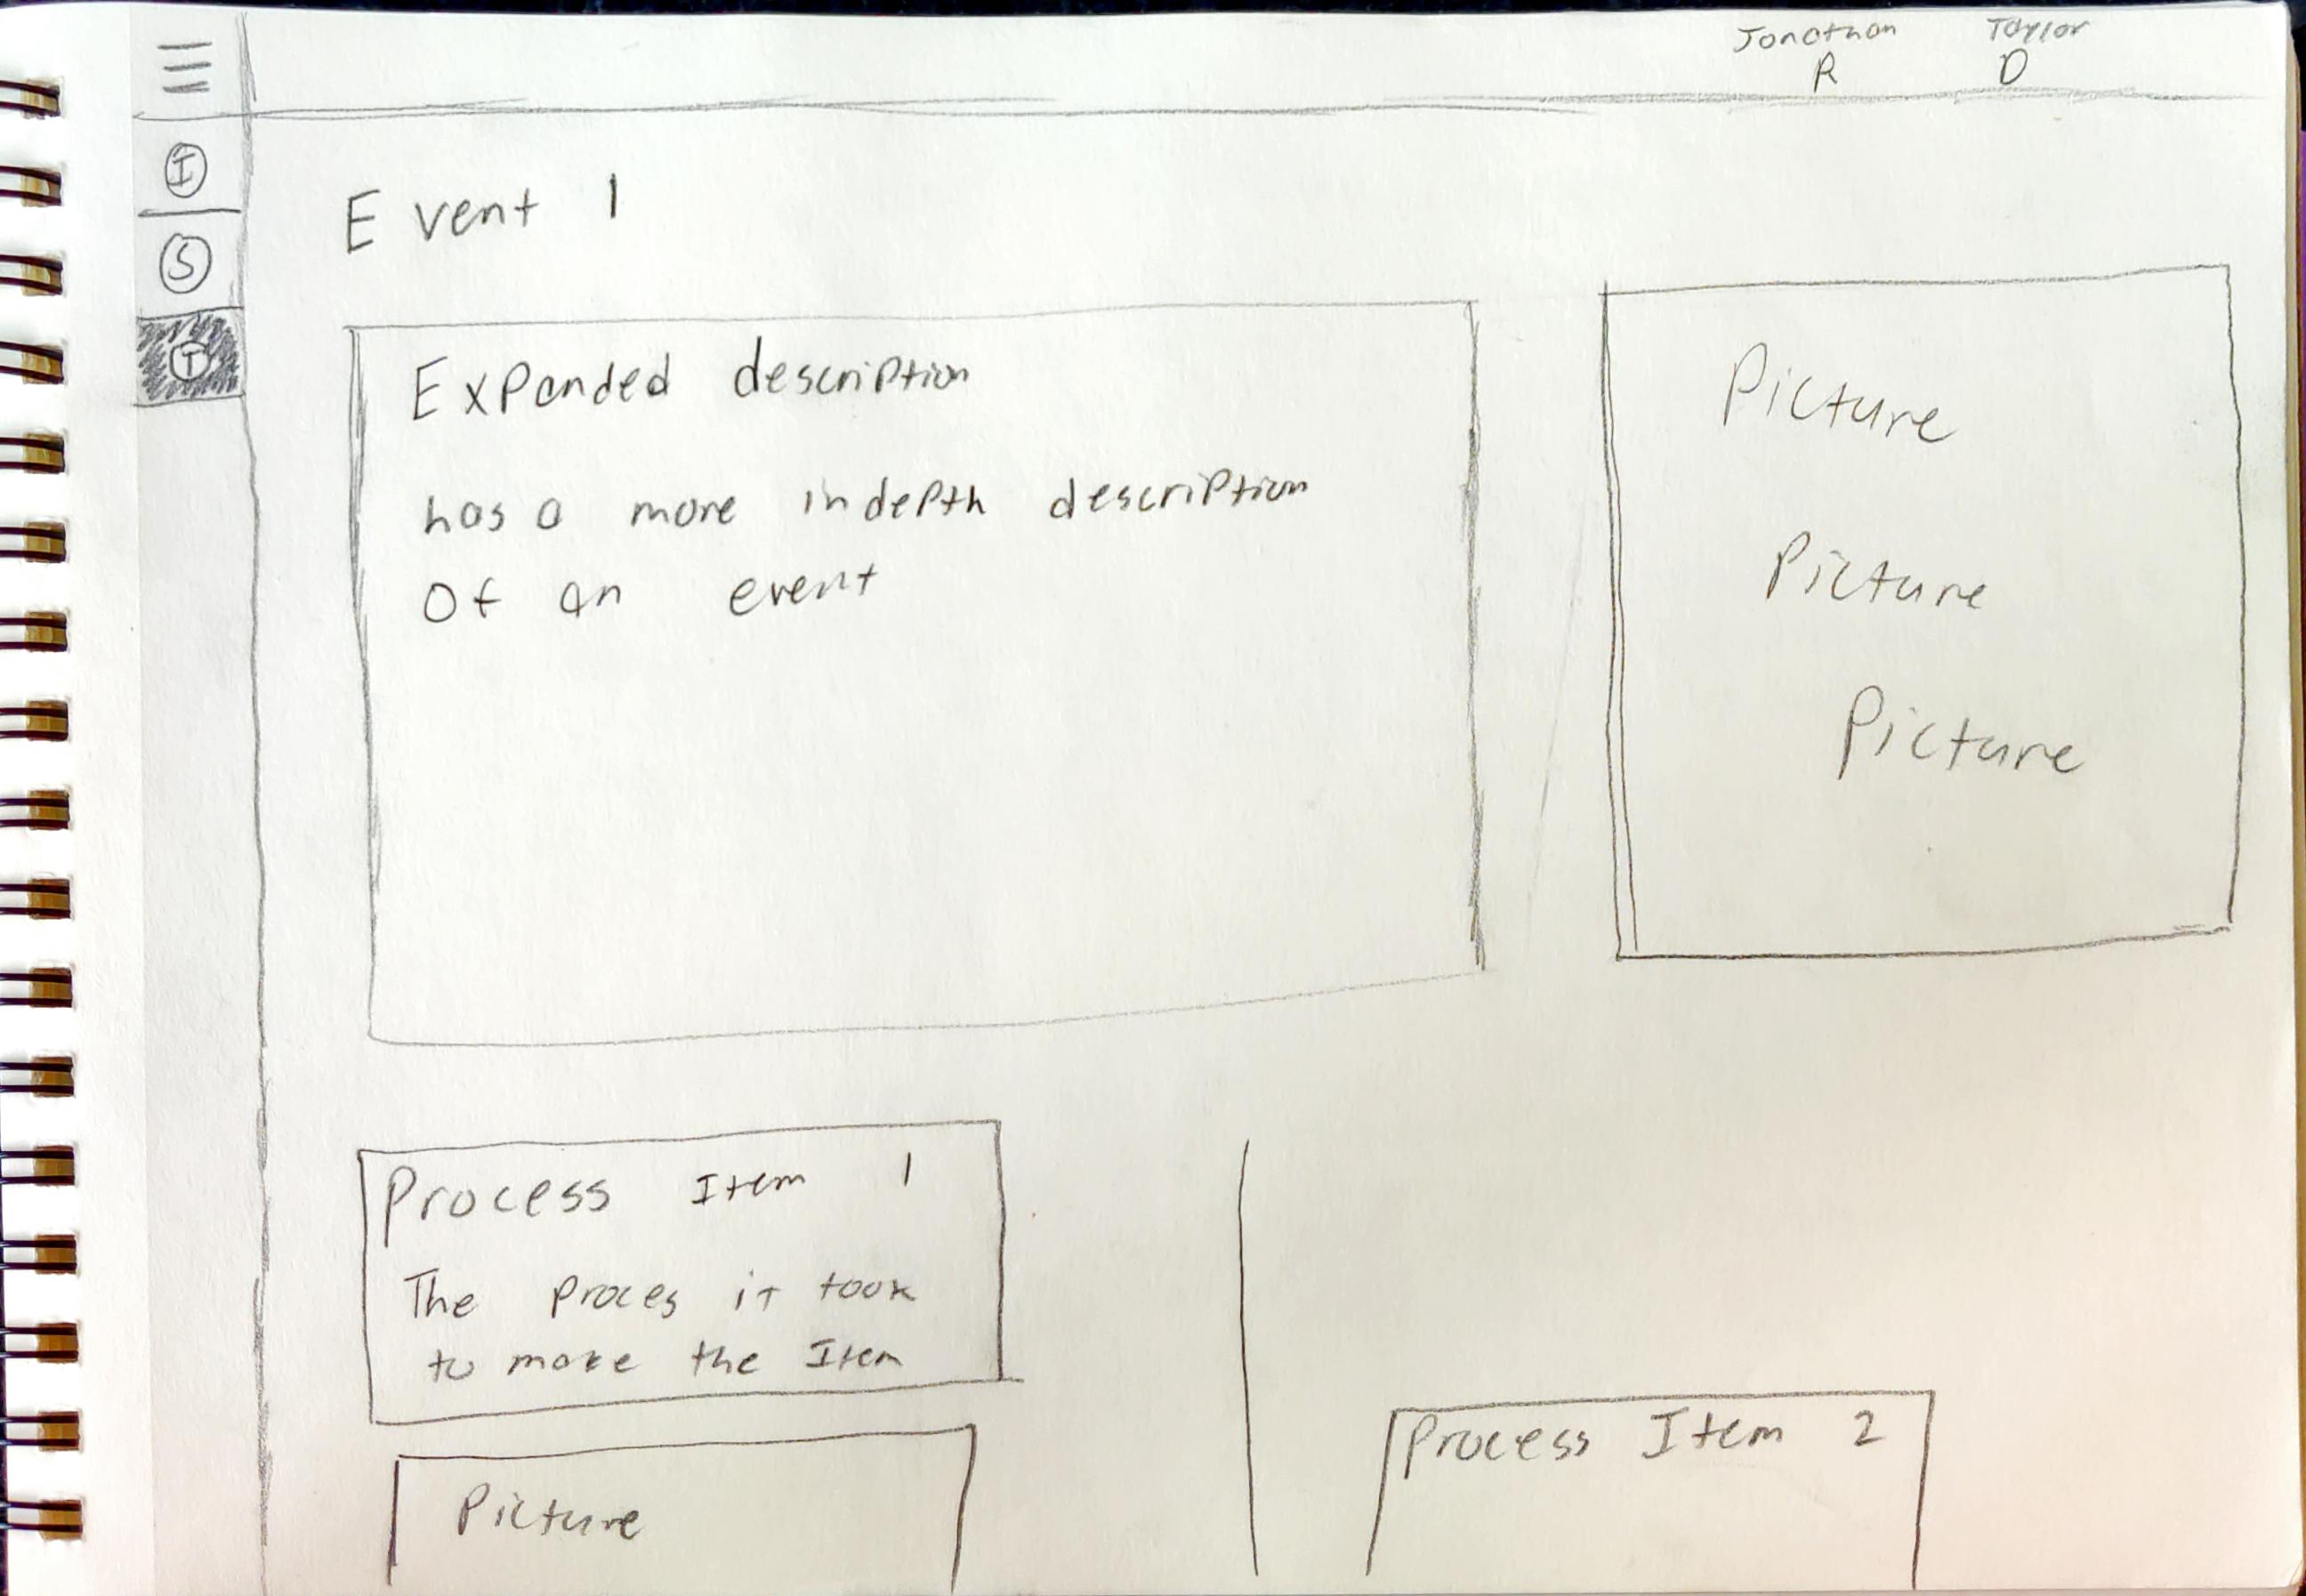 Jonathan Taylor
R D
I
S
T
Event 1
Expanded description
has a more indepth description
of an event
Picture
Picture
Picture
Process Item 1
The proces it took
to make the Item
Picture
Process Item 2